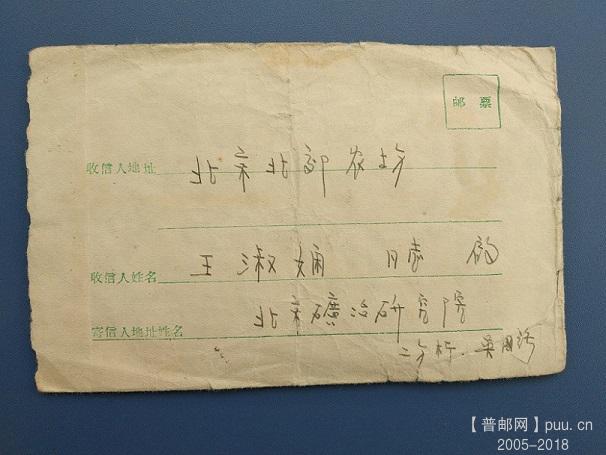 邮 票
收信人地址 北京北郊农场
收信人姓名 王淑娴 同志 启
寄信人地址姓名 北京礦冶研究院
二分析.吴国
【普邮网】puu.cn
2005-2018